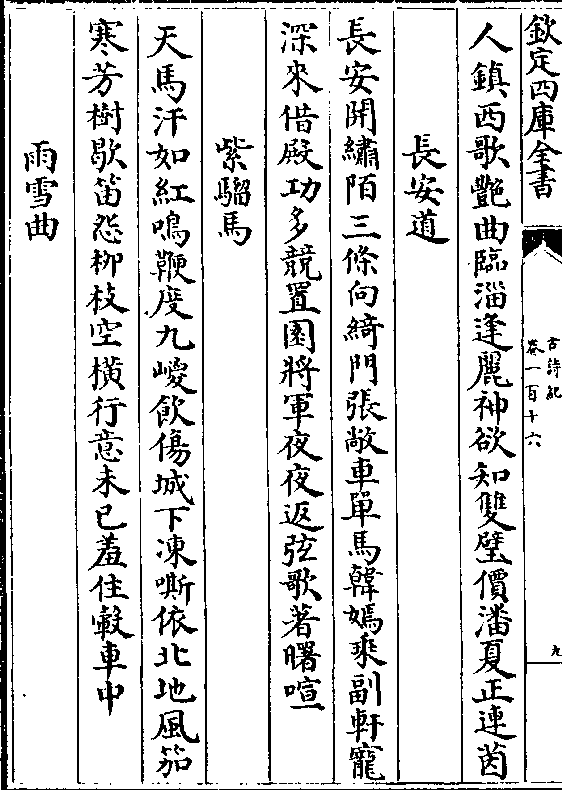 欽定四庫全書
古詩紀
卷一百十六
九
人鎮西歌艷曲臨淄逢麗神欲知雙璧價潘夏正連茵
長安道
長安開繡陌三條向綺門張敞車單馬韓嫣乘副軒寵
深來借殿功多競置園將軍夜夜返弦歌著曙喧
紫騮馬
天馬汗如紅鳴鞭度九嵕飲傷城下凍嘶依北地風笳
寒芳樹歇笛怨柳枝空橫行意未已羞住轂車中
雨雪曲